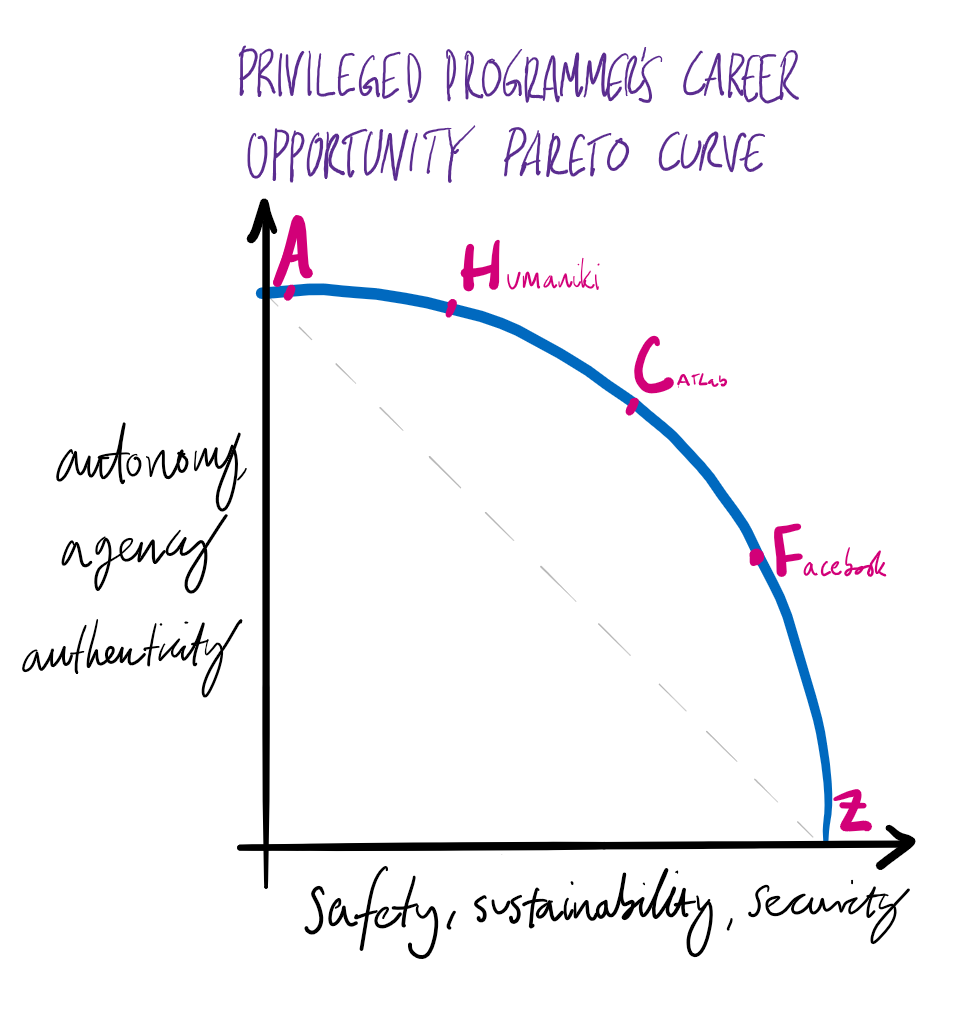 PRIVILEGED PROGRAMMER'S CAREER
OPPORTUNITY PARETO CURVE
A
Humaniki
CATLab
autonomy
agency
Facebook
authenticity
Z
safety, sustainability, security